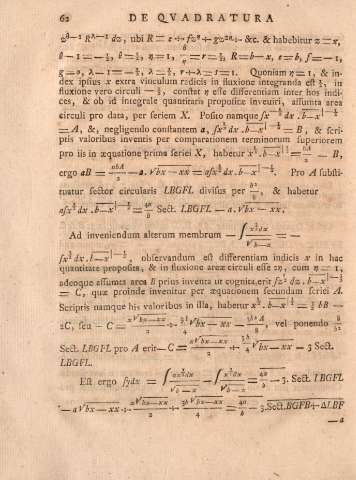 62 DE QVADRATURA
z^{θ-1} R^{λ-1} dz, ubi R = e + fz^η + gz^{2η} + &c. & habebitur z = x,
θ - 1 = -½, θ = ½, η = 1, θ/η = r = ½, R = b - x, e = b, f = -1,
g = 0, λ - 1 = -½, λ = ½, r + λ = s = 1. Quoniam η = 1, & in-
dex ipsius x extra vinculum radicis in fluxione integranda est ½, in
fluxione vero circuli - ½, constat η esse differentiam inter hos indi-
ces, & ob id integrale quantitatis propositæ inveniri, assumta area
circuli pro data, per seriem X. Posito namque ∫x^{-½} dx . b - x|^{-½}
= A, &, negligendo constantem a, ∫x^{½} dx . b - x|^{-½} = B, & scri-
ptis valoribus inventis per comparationem terminorum superiorem
pro iis in æquatione prima seriei X, habetur x^{½} . b - x|^{½} = bA/2 - B,
ergo aB = abA/2 - a . √bx - xx = a∫x^{½} dx . b - x|^{-½}. Pro A substi-
tuatur sector circularis LBGFL divisus per b²/8, & habetur
a∫x^{½} dx . b - x|^{-½} = 4a/b Sect. LBGFL - a . √bx - xx.
Ad inveniendum alterum membrum - ∫ x^{3/2} dx / √b - x = -
∫x^{3/2} dx . b - x|^{-½}, observandum est differentiam indicis in hac
quantitate proposita, & in fluxione areæ circuli esse 2η, cum η = 1,
adeoque assumta area B prius inventa ut cognita, erit ∫x^{3/2} dx . b - x|^{-½}
= C, quæ proinde invenitur per æquationem secundam seriei X.
Scriptis namque his valoribus in illa, habetur x^{3/2} . b - x|^{½} = 3/2 bB -
2C, seu - C = x√bx - xx/2 + 3b/4 √bx - xx - 3b²A/8, vel ponendo 8/b²
Sect. LBGFL pro A erit - C = x√bx - xx/2 + 3b/4 √bx - xx - 3 Sect.
LBGFL.
Est ergo ∫ydx = ∫ ax^{½}dx / √b - x - ∫ x^{3/2} dx / √b - x = 4a/b - 3 . Sect. LBGFL
- a√bx - xx + x√bx - xx/2 + 3b√bx - xx/4 = 4a/b - 3 . Sect. BGFB + ΔLBF
- a